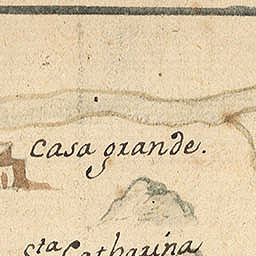 casa grande.
Sta Catharina